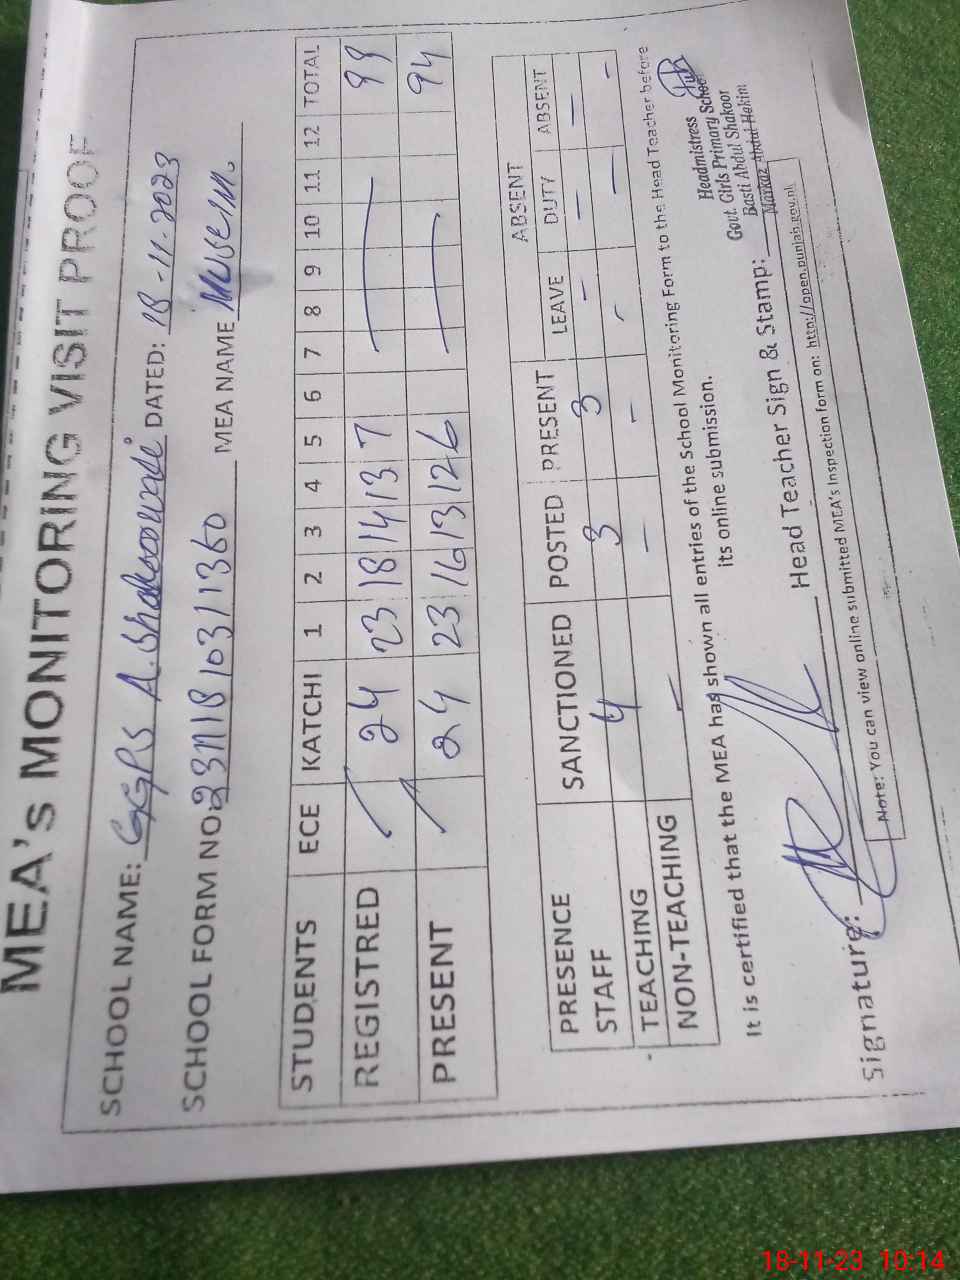 MEA's MONITORING VISIT PROOF
SCHOOL NAME: GGPS A. Shakoor DATED: 18-11-2023
SCHOOL FORM NO: 2311181031 1360 MEA NAME Mohsin.
STUDENTS ECE KATCHI 1 2 3 4 5 6 7 8 9 10 11 12 TOTAL
REGISTRED 24 23 18 14 13 7 99
PRESENT 24 23 16 13 12 6 94
PRESENCE STAFF SANCTIONED POSTED PRESENT ABSENT
LEAVE DUTY ABSENT
TEACHING 4 3 3 - - -
NON-TEACHING - - - - - -
It is certified that the MEA has shown all entries of the School Monitoring Form to the Head Teacher before
its online submission.
Headmistress
Govt. Girls Primary School
Basti Abdul Shakoor
Markaz Abdul Hakim
Signature: Head Teacher Sign & Stamp:
Note: You can view online submitted MEA's Inspection form on: http://open.punjab.gov.pk
18-11-23 10:14